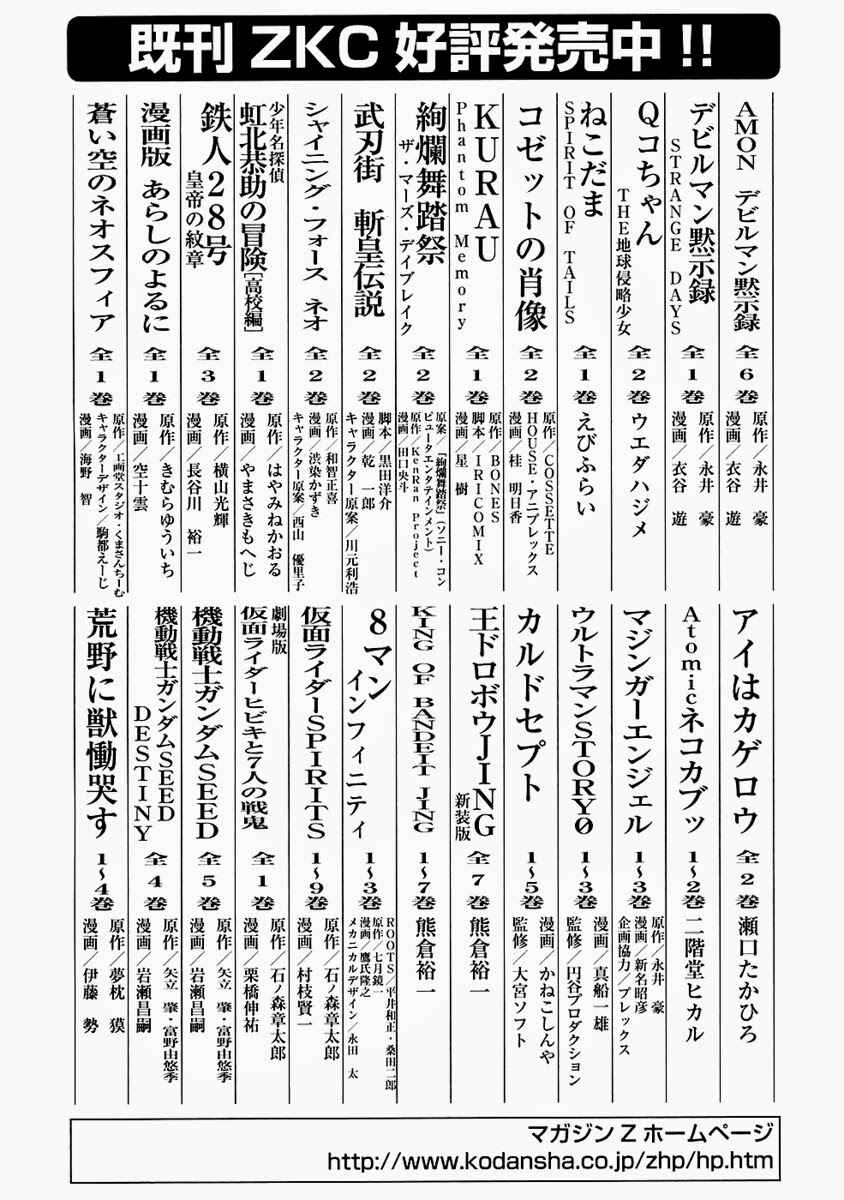 既刊 ZKC 好評発売中 !!
AMON デビルマン黙示録 全6巻 原作／永井 豪 漫画／衣谷 遊
デビルマン黙示録 STRANGE DAYS 全1巻 原作／永井 豪 漫画／衣谷 遊
Qコちゃん THE地球侵略少女 全2巻 ウエダハジメ
ねこだま SPIRIT OF TAILS 全1巻 えびふらい
コゼットの肖像 全2巻 原作／COSSETTE HOUSE・アニプレックス 漫画／桂 明日香
KURAU Phantom Memory 全1巻 原作／BONES 脚本／IRICOMIX 漫画／星 樹
絢爛舞踏祭 ザ・マーズ・デイブレイク 全2巻 原案／「絢爛舞踏祭」（ソニー・コンピュータエンタテインメント） 原作／KenRan Project 漫画／田口央斗
武刃街 斬皇伝説 全2巻 脚本／黒田洋介 漫画／乾 一郎 キャラクター原案／川元利浩
シャイニング・フォース ネオ 全2巻 原作／和智正喜 漫画／渋染かずき キャラクター原案／西山 優里子
少年名探偵 虹北恭助の冒険［高校編］ 全1巻 原作／はやみねかおる 漫画／やまさきもへじ
鉄人28号 皇帝の紋章 全3巻 原作／横山光輝 漫画／長谷川 裕一
漫画版 あらしのよるに 全1巻 原作／きむらゆういち 漫画／空十雲
蒼い空のネオスフィア 全1巻 原作／工画堂スタジオ・くまさんちーむ キャラクターデザイン／駒都えーじ 漫画／海野 智
アイはカゲロウ 全2巻 瀬口たかひろ
Atomicネコカブッ 1〜2巻 二階堂ヒカル
マジンガーエンジェル 1〜3巻 原作／永井 豪 漫画／新名昭彦 企画協力／ブレックス
ウルトラマンSTORY0 1〜3巻 漫画／真船一雄 監修／円谷プロダクション
カルドセプト 1〜5巻 漫画／かねこしんや 監修／大宮ソフト
王ドロボウJING 新装版 全7巻 熊倉裕一
KING OF BANDEIT JING 1〜7巻 熊倉裕一
8マン インフィニティ 1〜3巻 ROOTS／平井和正・桑田二郎 原作／七月鏡一 漫画／鷹氏隆之 メカニカルデザイン／永田 太
仮面ライダーSPIRITS 1〜9巻 原作／石ノ森章太郎 漫画／村枝賢一
劇場版 仮面ライダーヒビキと7人の戦鬼 全1巻 原作／石ノ森章太郎 漫画／栗橋伸祐
機動戦士ガンダムSEED 全5巻 原作／矢立 肇・富野由悠季 漫画／岩瀬昌嗣
機動戦士ガンダムSEED DESTINY 全4巻 原作／矢立 肇・富野由悠季 漫画／岩瀬昌嗣
荒野に獣慟哭す 1〜4巻 原作／夢枕 獏 漫画／伊藤 勢
マガジンZホームページ
http://www.kodansha.co.jp/zhp/hp.htm